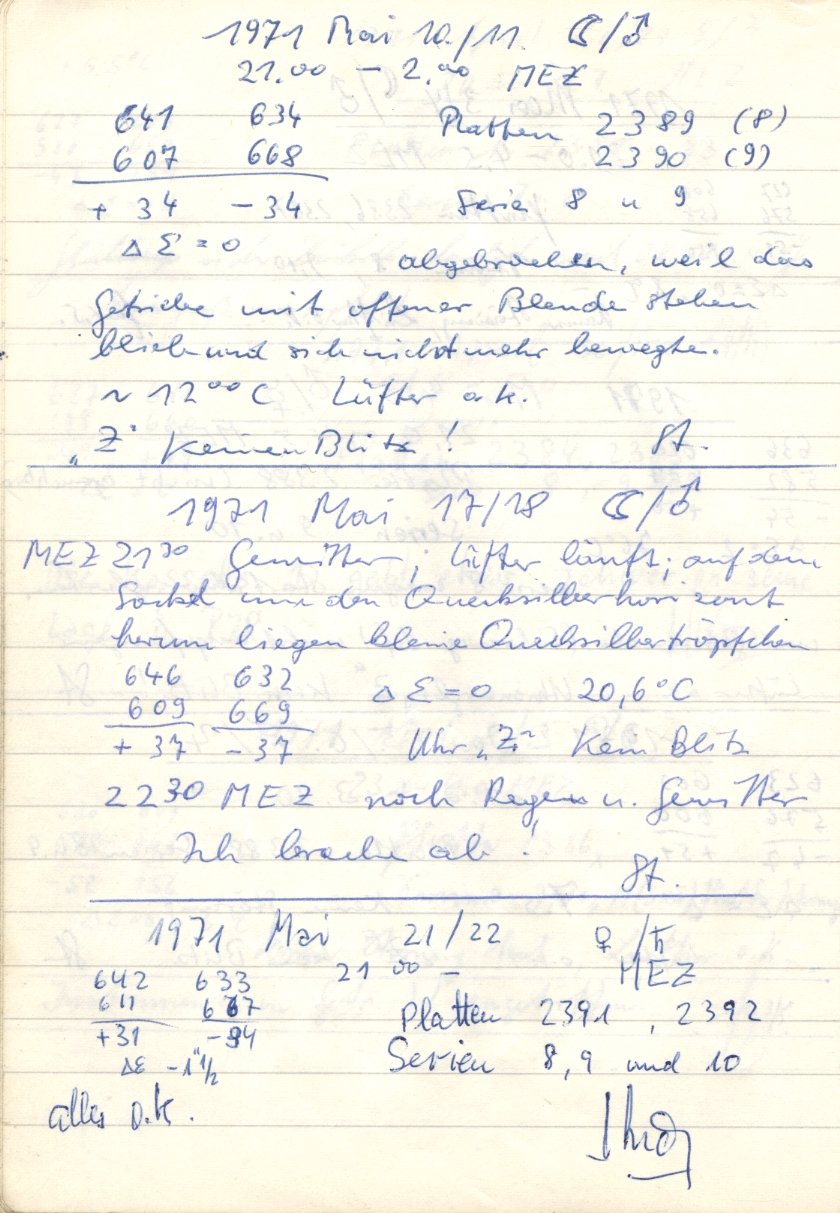 1971 Mai 10./11. ☾/♂
21.00 – 2.00 MEZ
641 634 Platten 2389 (8)
607 668 2390 (9)
+ 34 – 34 Serie 8 u 9
Δ Σ = 0
abgebrochen, weil das
Getriebe mit offener Blende stehen
blieb und sich nicht mehr bewegte.
~ 12°° C Lüfter o.k.
„Z" Keinen Blitz! St.
1971 Mai 17/18 ☾/♂
MEZ 21³⁰ Gewitter; Lüfter läuft; auf dem
Sockel um den Quecksilberhorizont
herum liegen kleine Quecksilbertröpfchen
646 632 Δ Σ = 0 20,6°C
609 669
+ 37 – 37 Uhr „Z" Kein Blitz
2230 MEZ noch Regen u. Gewitter
Ich breche ab!
St.
1971 Mai 21/22 ♀/♄
642 633 21°° – MEZ
611 667 Platten 2391, 2392
+31 –34
Δε –1"½ Serien 8, 9 und 10
alles o.k.